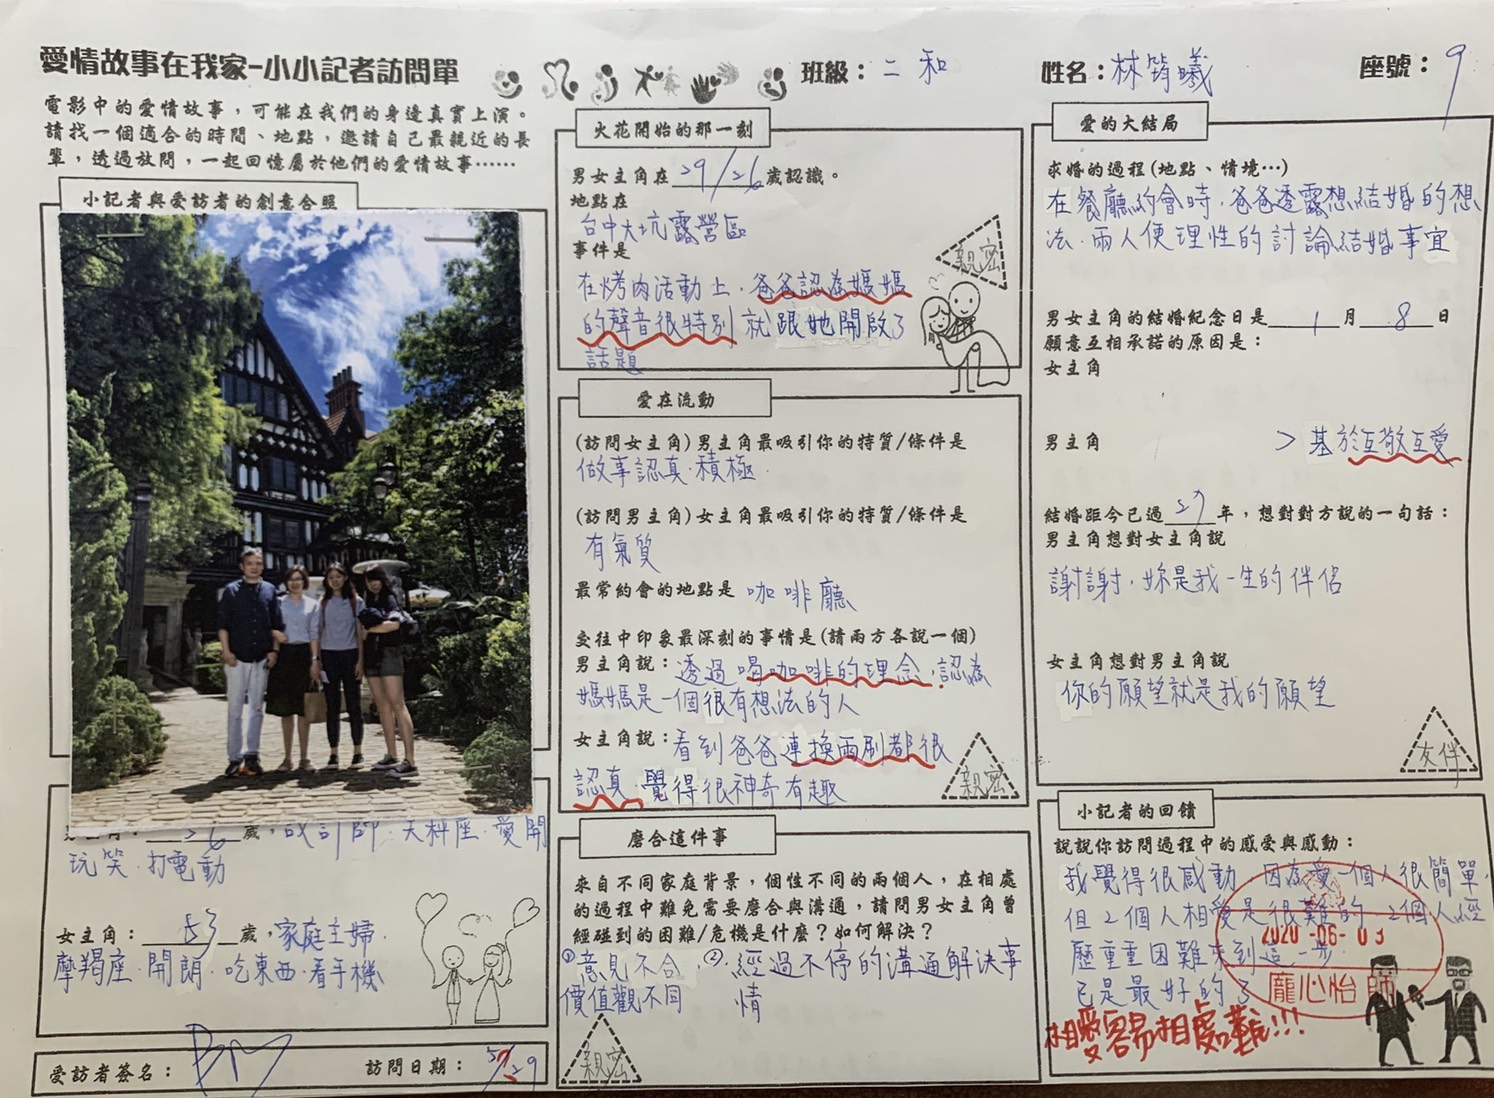 愛情故事在我家-小小記者訪問單
班級：二 和
姓名：林筠曦
座號：9
電影中的愛情故事，可能在我們的身邊真實上演。
請找一個適合的時間、地點，邀請自己最親近的長
輩，透過放問，一起回憶屬於他們的愛情故事……
小記者與受訪者的創意合照
歲，設計師．天秤座．愛開
玩笑．打電動
女主角：53歲，家庭主婦．
摩羯座．開朗．吃東西．看手機
受訪者簽名：
訪問日期：5/29
火花開始的那一刻
男女主角在29/26歲認識。
地點在
台中大坑露營區
事件是
在烤肉活動上．爸爸認為媽媽
的聲音很特別 就跟她開啟了
話題
親密
愛在流動
(訪問女主角)男主角最吸引你的特質/條件是
做事認真．積極．
(訪問男主角)女主角最吸引你的特質/條件是
有氣質
最常約會的地點是 咖啡廳
交往中印象最深刻的事情是(請兩方各說一個)
男主角說：透過喝咖啡的理念，認為
媽媽是一個很有想法的人
女主角說：看到爸爸連換雨刷都很
認真．覺得很神奇有趣
親密
磨合這件事
來自不同家庭背景，個性不同的兩個人，在相處
的過程中難免需要磨合與溝通，請問男女主角曾
經碰到的困難/危機是什麼？如何解決？
①意見不合，②．經過不停的溝通解決事
價值觀不同 情
親密
愛的大結局
求婚的過程(地點、情境…)
在餐廳約會時．爸爸透露想結婚的想
法．兩人便理性的討論結婚事宜
男女主角的結婚紀念日是1月8日
願意互相承諾的原因是：
女主角
男主角
＞基於互敬互愛
結婚距今已過27年，想對對方說的一句話：
男主角想對女主角說
謝謝．妳是我一生的伴侶
女主角想對男主角說
你的願望就是我的願望
友伴
小記者的回饋
說說你訪問過程中的感受與感動：
我覺得很感動 因為愛一個人很簡單，
但2個人相愛是很難的．2個人經
歷重重困難來到這一步．
已是最好的了
2020-06-03
龐心怡 師
相愛容易相處難!!!